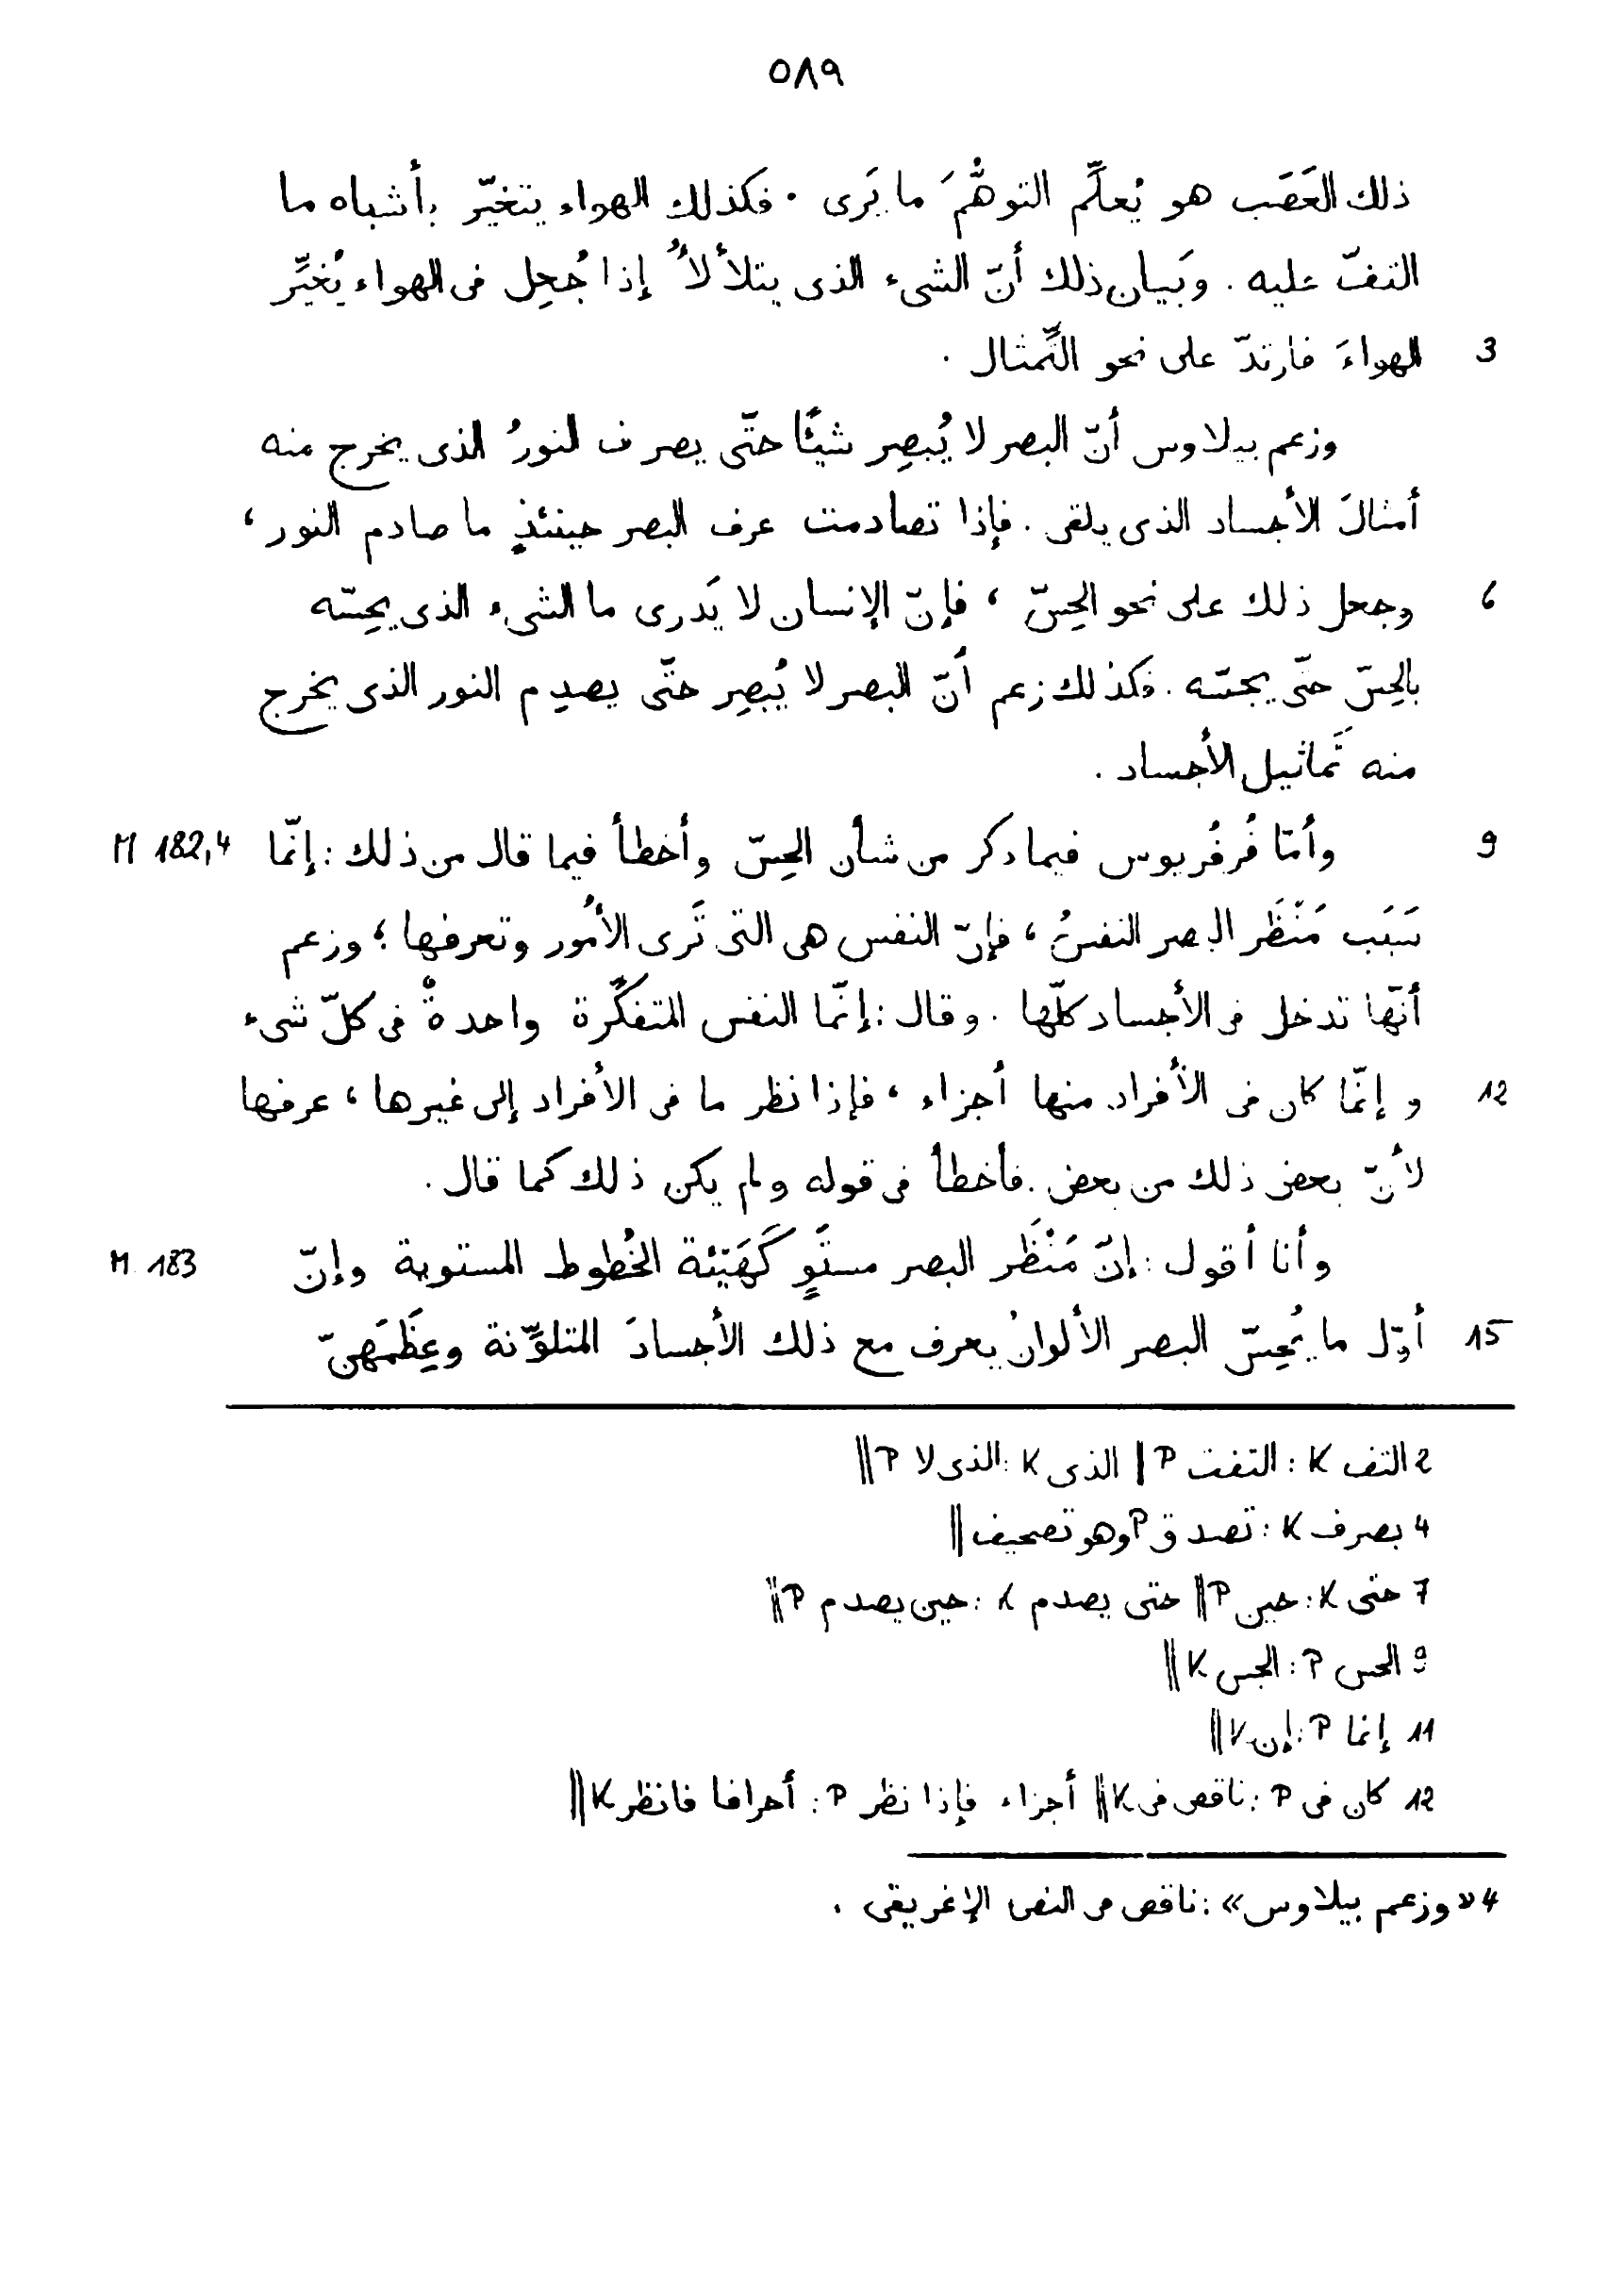 ٥٨٩
ذلك العَصَب هو يُعلِّم التوهُّمَ ما يَرى . فكذلك الهواء يتغيّر بأشباه ما
التفّ عليه . وبَيان ذلك أنّ الشىء الذى يتلألأُ إذا جُعِل فى الهواء يُغيِّر
3 الهواءَ فارتدّ على نحو التِّمثال .
وزعم بيلاوس أنّ البصر لا يُبصِر شيئًا حتّى يصرف النورُ الذى يخرج منه
أمثالَ الأجساد الذى يلقى . فإذا تصادمت عرف البصر حينئذٍ ما صادم النور ،
6 وجعل ذلك على نحو الحِسّ ، فإنّ الإنسان لا يَدرى ما الشىء الذى يحِسّه
بالحِسّ حتّى يحسّه . فكذلك زعم أنّ البصر لا يُبصِر حتّى يصدِم النور الذى يخرج
منه تَماثيل الأجساد .
9 وأمّا فُرفُريوس فيما ذكر من شأن الحِسّ وأخطأ فيما قال من ذلك : إنّما M 182,4
سَبَب مَنْظَر البصر النفسُ ، فإنّ النفس هى التى تَرى الأُمور وتعرفها ؛ وزعم
أنّها تدخل فى الأجساد كلّها . وقال : إنّما النفس المتفكِّرة واحدةٌ فى كلّ شىء
12 و إنّما كان فى الأفراد منها أجزاء ، فإذا نظر ما فى الأفراد إلى غيرها ، عرفها
لأنّ بعض ذلك من بعض . فأخطأ فى قوله ولم يكن ذلك كما قال .
وأنا أقول : إنّ مَنْظَر البصر مستَوٍ كَهَيْئة الخُطوط المستوية وإنّ M 183
15 أوّل ما يُحِسّ البصر الألوانُ يعرف مع ذلك الأجسادَ المتلوِّنة وعِظَمَهنّ
2 التف K : التفت P ‖ الذى K : الذى لا P ‖
4 يصرف K : تصدق P وهو تصحيف ‖
7 حتى K : حين P ‖ حتى يصدم K : حين يصدم P ‖
9 الحس P : الجس K ‖
11 إنما P : إن K ‖
12 كان فى P : ناقص فى K ‖ أجزاء فإذا نظر P : أحرافا فانظر K ‖
4 «وزعم بيلاوس» : ناقص فى النص الإغريقى .